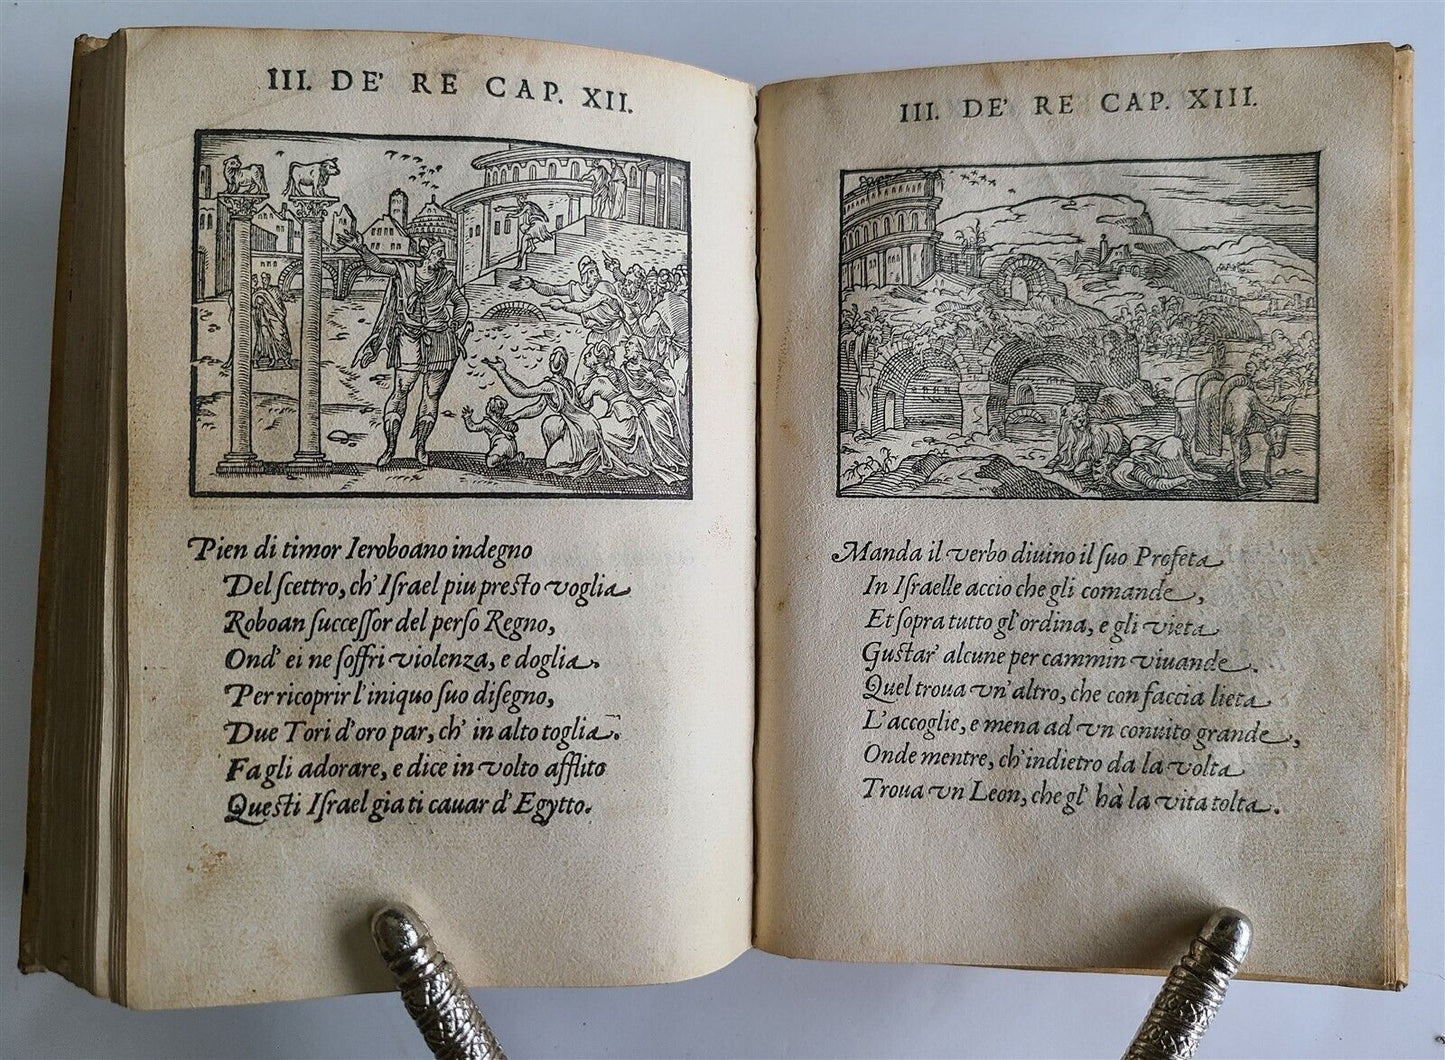 III. DE' RE CAP. XII.
Pien di timor Ieroboano indegno
Del scettro, ch' Iſrael piu presto voglia
Roboan ſucceſſor del perſo Regno,
Ond' ei ne ſoffri violenza, e doglia.
Per ricoprir l'iniquo ſuo diſegno,
Due Tori d'oro par, ch' in alto toglia.
Fagli adorare, e dice in volto afflito
Questi Iſrael gia ti cauar d' Egytto.
III. DE' RE CAP. XIII.
Manda il verbo diuino il ſuo Profeta
In Iſraelle accio che gli comande,
Et ſopra tutto gl' ordina, e gli vieta
Gustar' alcune per cammin viuande.
Quel troua vn' altro, che con faccia lieta
L'accoglie, e mena ad vn conuito grande,
Onde mentre, ch' indietro da la volta
Troua vn Leon, che gl' hà la vita tolta.